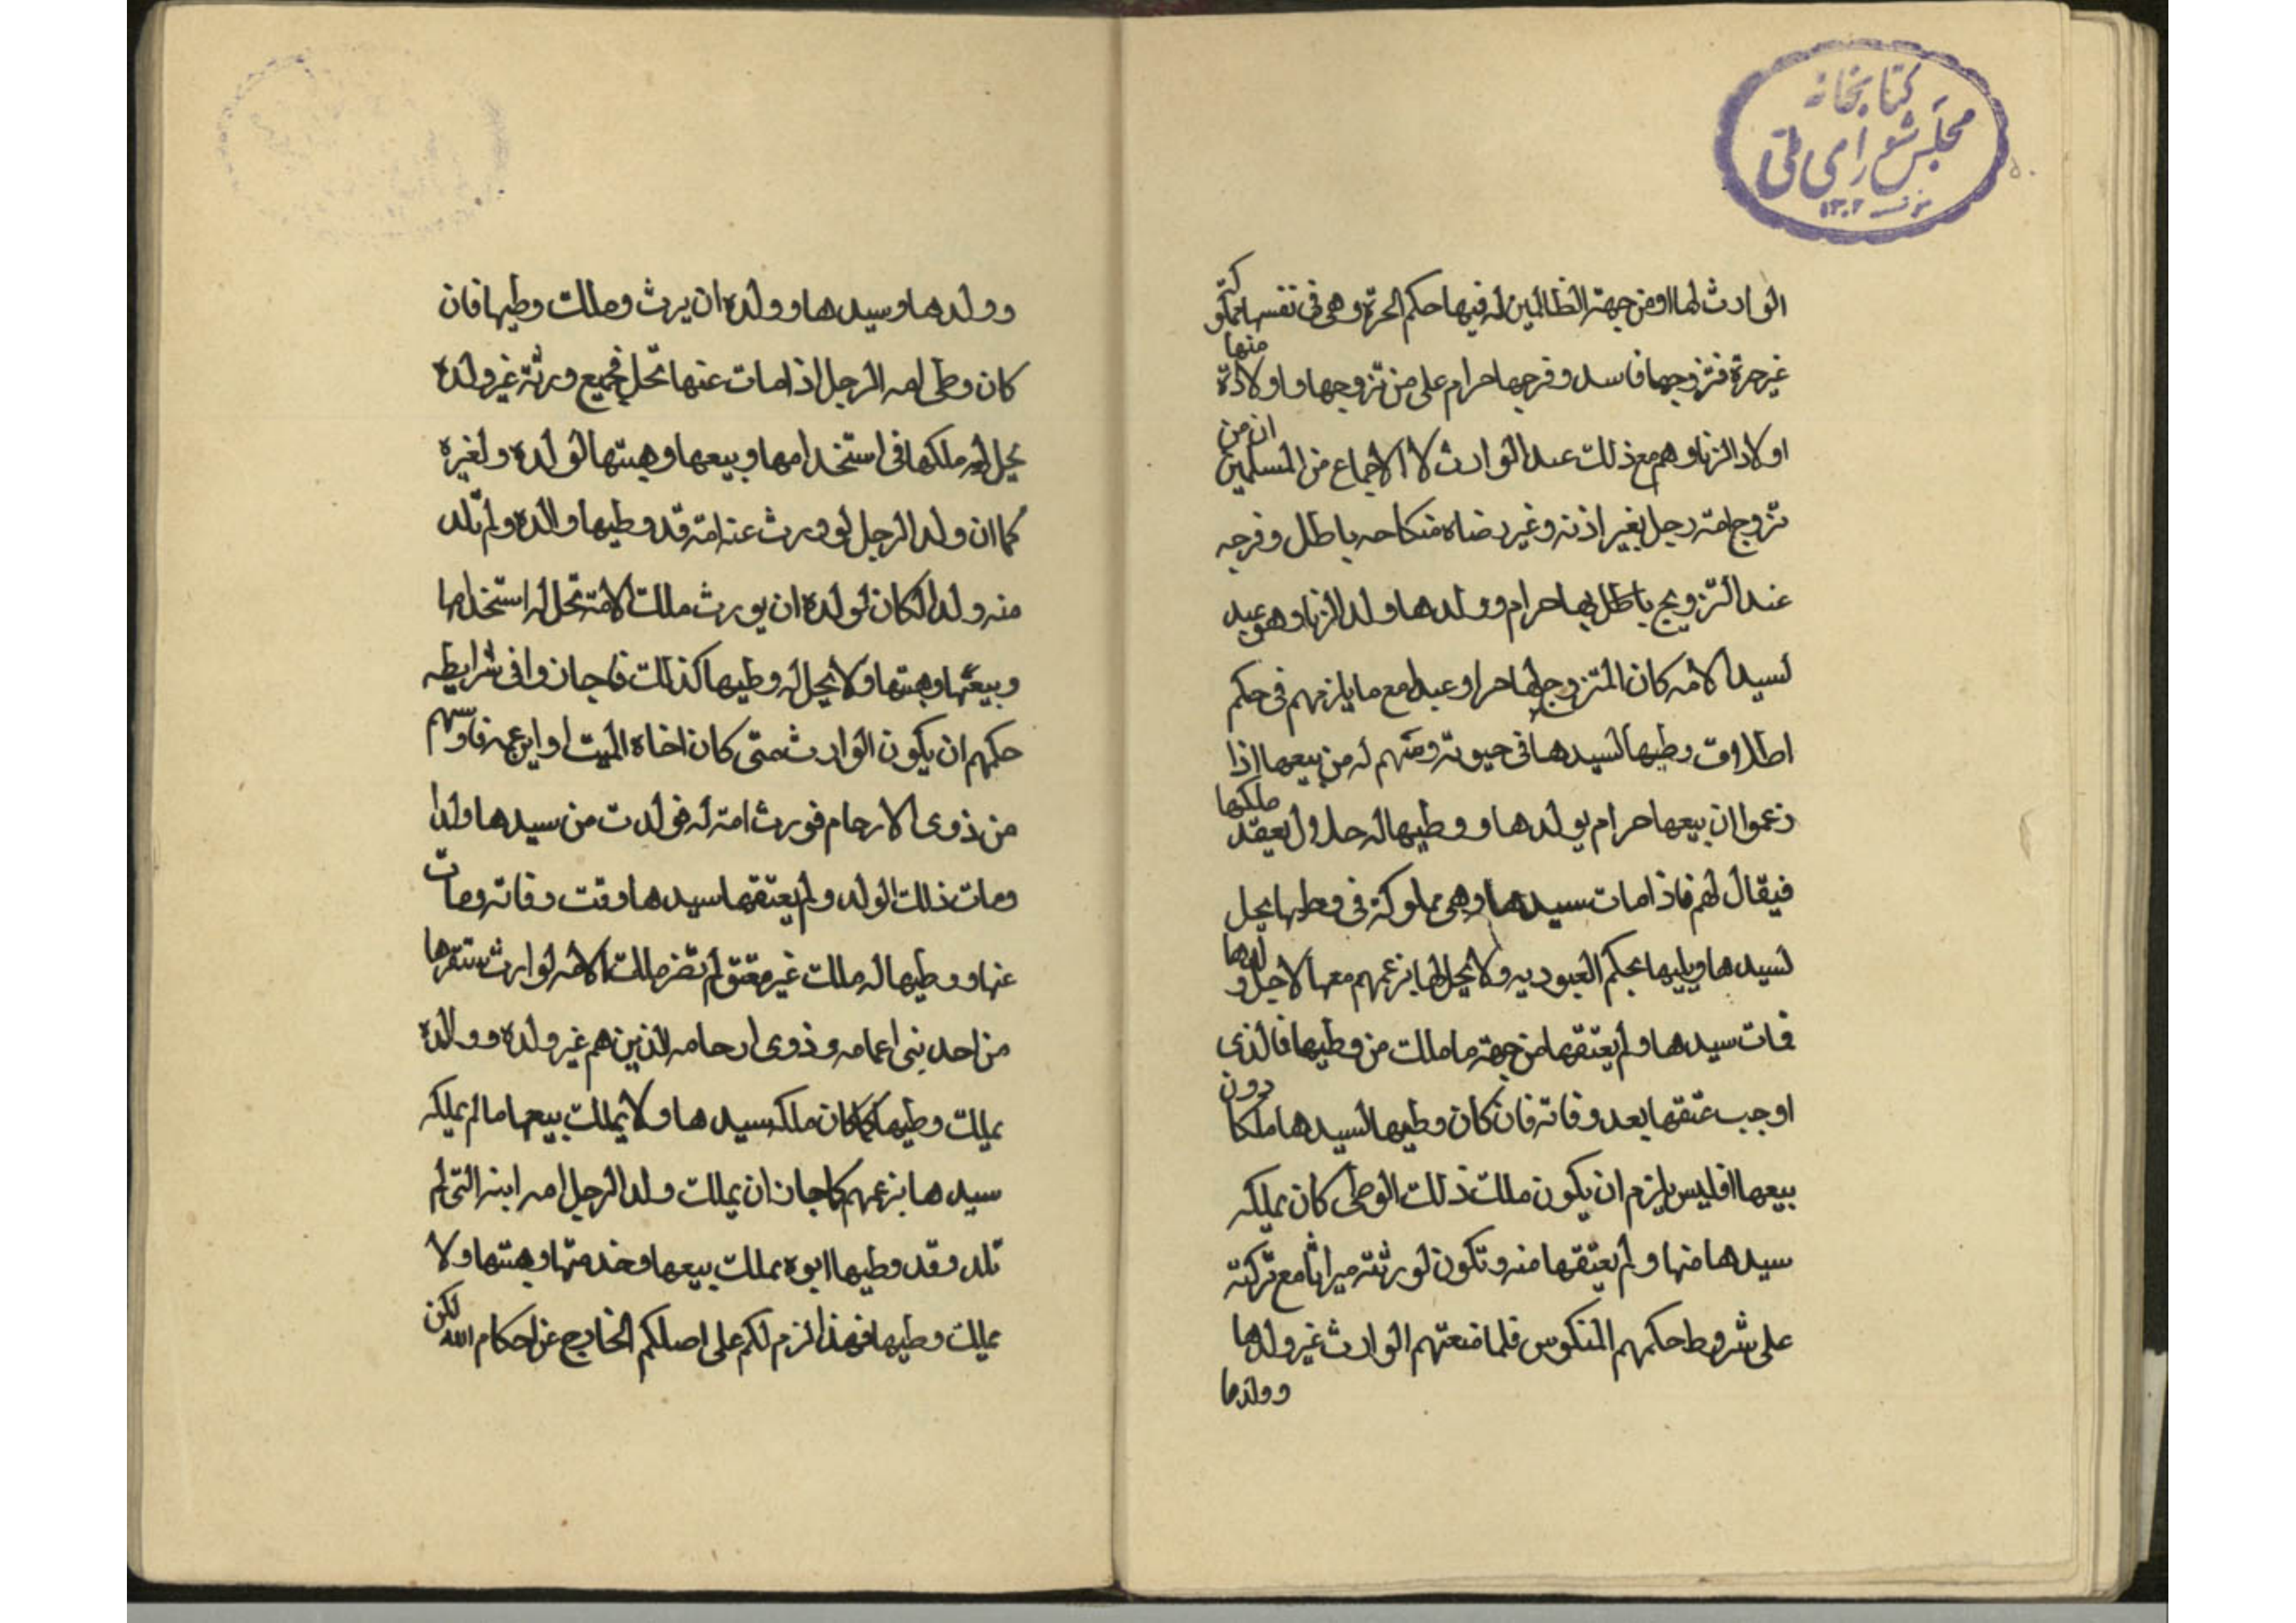 كتابخانه
مجلس شورای ملی
١٣٠٢
الوارث لها او من جهة الظالمين له فيها حكم الحرة وهى فى نفسها مملوكة
غير حرة فتزوجها فاسد وفرجها حرام على من تزوجها واولاده منها
اولاد الزنا وهم مع ذلك عبد الوارث لا الاجماع من المسلمين ان من
تزوج امة رجل بغير اذنه وغير رضاه فنكاحه باطل وفرجه
عند التزويج باطل بها حرام وولدها ولد الزنا وهو عبد
لسيد الامه كان المتزوج لها حرا او عبدا مع ما يلزمهم فى حكم
اطلاق وطيها لسيدها فى حيوته ومنهم له من بيعها اذا
زعموا ان بيعها حرام بولدها ووطيها له حلال بعقد ملكها
فيقال لهم فاذا مات سيدها وهى مملوكة فى وطيها يحل
لسيدها ويليها بحكم العبوديه ولا يحل لها بزعمهم معها لاجل ولدها
فات سيدها ولم يعتقها من جهة ما ملك من وطيها فالذى
اوجب عتقها بعد وفاته فان كان وطيها لسيدها ملكا دون
بيعها افليس يلزم ان يكون ملك ذلك الوطى كان يملكه
سيدها منها ولم يعتقها منه وتكون لورثته ميراثا مع تركته
على شروط حكمهم المنكوس فلما منعتهم الوارث غير ولدها
وولدها
وولدها وسيدها وولده ان يرث وملك وطيها فان
كان وطى امه الرجل اذا مات عنها تحل لجميع ورثته غير ولده
يحل له ملكها فى استخدامها وبيعها وهبتها لولده ولغيره
كما ان ولد الرجل لو ورث عنه امة قد وطيها والده ولم تلد
منه ولدا لكان لولده ان يورث ملك الامة تحل له استخدامها
وبيعها وهبتها ولا يحل له وطيها كذلك فاجازوا فى شرايطه
حكمهم ان يكون الوارث متى كان اخاه الميت او ابن عمه فاوسهم
من ذوى الارحام فورث امة له فولدت من سيدها ولدا
ومات ذلك الولد ولم يعتقها سيدها وقت وفاته ومات
عنها ووطيها له ملك غير معتق لم تضر ملك الامه لوارث
من احد بنى اعمامه وذوى ارحامه الذين هم غير ولده ووالده
يملك وطيها كما كان ملكه سيدها ولا يملك بيعها ما لم يملكه
سيدها بزعمهم كما جاز ان يملك ولد الرجل امه ابنه التى لم
تلد وقد وطيها ابوه يملك بيعها وخدمتها وهبتها ولا
يملك وطيها فهذا لزم لكم على اصلكم الخارج عن احكام الله لكن